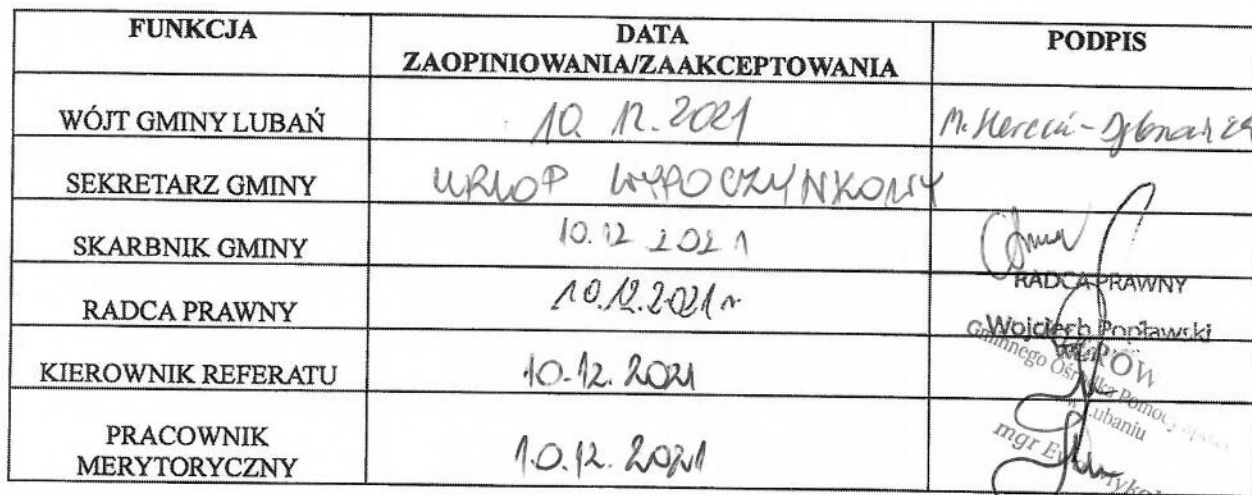 FUNKCJA
DATA
ZAOPINIOWANIA/ZAAKCEPTOWANIA
PODPIS
WÓJT GMINY LUBAŃ
10. 12. 2021
SEKRETARZ GMINY
URLOP WYPOCZYNKOWY
SKARBNIK GMINY
10.12 2021
RADCA PRAWNY
10.12.2021 r
RADCA PRAWNY
Wojciech Popławski
KIEROWNIK REFERATU
10.12.2021
Gminnego Ośrodka Pomocy
Lubaniu
PRACOWNIK
MERYTORYCZNY
10.12.2021
mgr